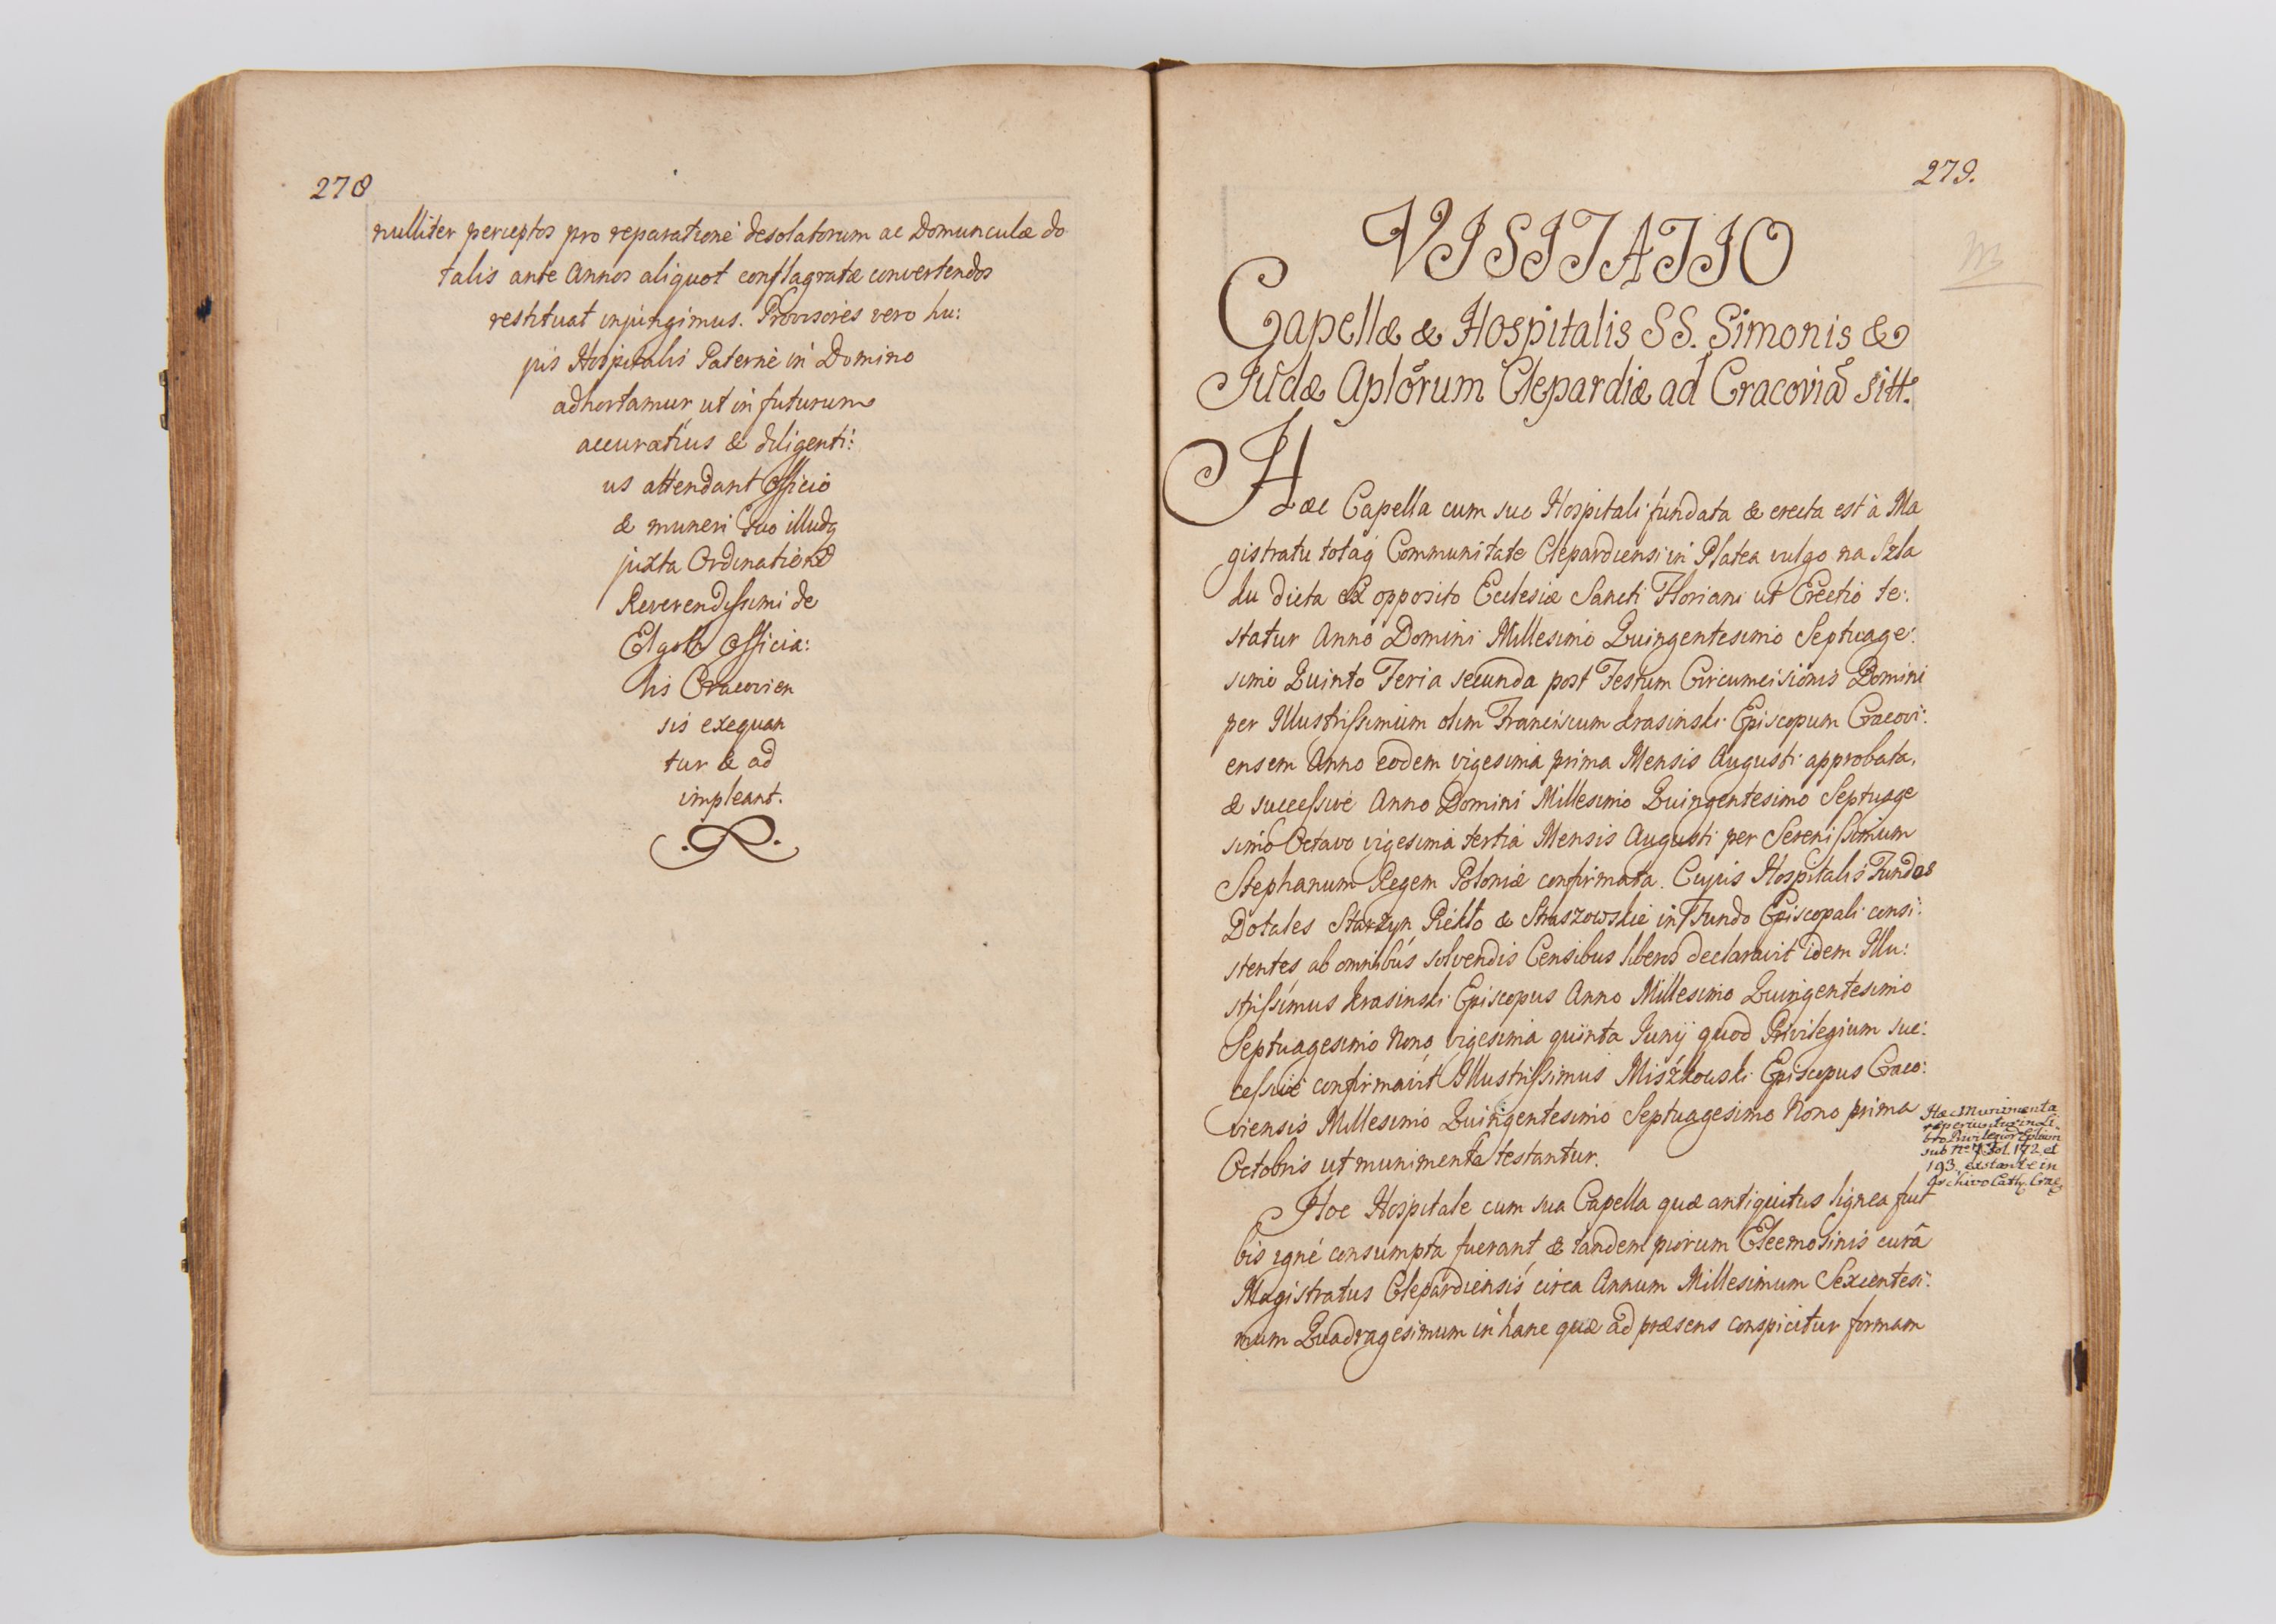 278
nulliter perceptos pro reparatione desolatorum ac Domunculæ do
talis ante Annos aliquot conflagratæ convertendos
restituat injungimus. Provisores vero hu:
jus Hospitalis Paterne in Domino
adhortamur ut in futurum
accuratius & diligenti:
us attendant Officio
& muneri suo illudq
juxta Ordinationẽ
Reverendissimi de
Elgoth Officia:
lis Cracovien
sis exequan
tur & ad
impleant.
279.
VISITATIO
Capellæ & Hospitalis SS. Simonis &
Iudæ Aplõrum Clepardiæ ad Cracoviã sitt.
Hæc Capella cum suo Hospitali fundata & erecta est à Ma
gistratu totaq Communitate Clepardiensi in Platea vulgo na Szla
ku dicta ex opposito Ecclesiæ Sancti Floriani ut Erectio te:
statur Anno Domini Millesimo Quingentesimo Septuage:
simo Quinto Feria secunda post Festum Circumcisionis Domini
per Illustrissimum olim Franciscum Krasinski Episcopum Cracovi:
ensem Anno eodem vigesima prima Mensis Augusti approbata,
& successive Anno Domini Millesimo Quingentesimo Septuage
simo Octavo vigesima tertia Mensis Augusti per Serenissimum
Stephanum Regem Poloniæ confirmata. Cujus Hospitalis Fundos
Dotales Starzyn Piekło & Straszowskie in Fundo Episcopali consi:
stentes ab omnibus solvendis Censibus liberos declaravit idem Illu:
strissimus Krasinski Episcopus Anno Millesimo Quingentesimo
Septuagesimo Nono vigesima quinta Junij quod Privilegium suc:
cessive confirmavit Illustrissimus Miszkowski Episcopus Craco:
viensis Millesimo Quingentesimo Septuagesimo Nono prima
Octobris ut munimenta testantur.
Hæc Munimenta
reperiuntur in Li:
bro Privilegior
sub No fol. 172. et
193. extante in
Archivo Cath. Crac.
Hoc Hospitale cum sua Capella quæ antiquitus lignea fuit
bis igne consumpta fuerant, & tandem piorum Eleemosinis curâ
Magistratus Clepardiensis circa Annum Millesimum Sexcentesi:
mum Quadragesimum in hanc quæ ad præsens conspicitur formam